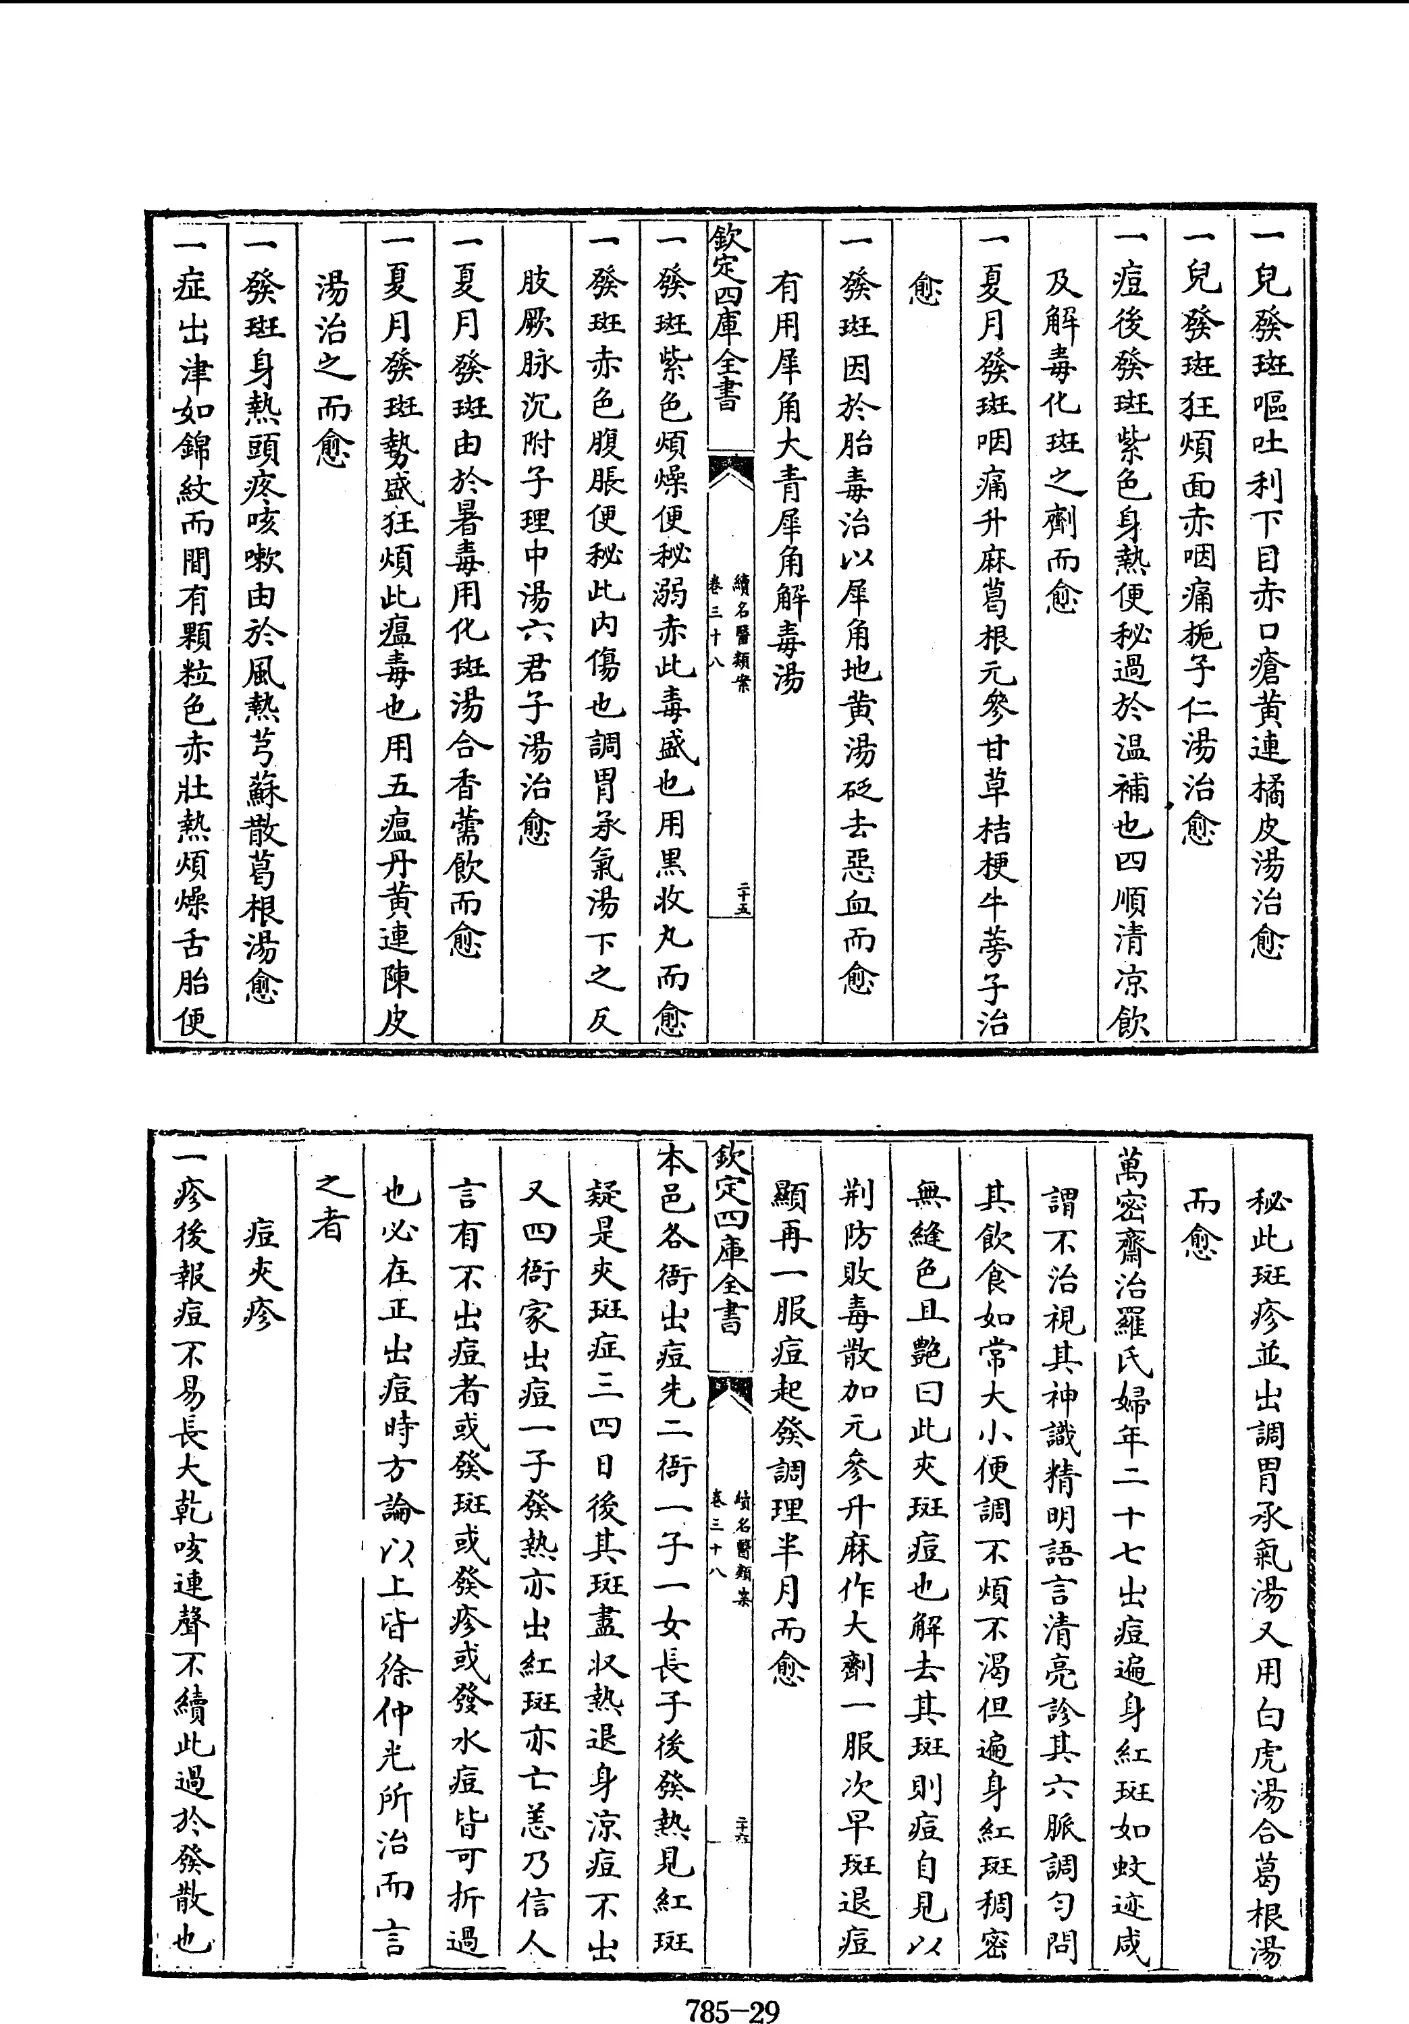 一兒發斑嘔吐利下目赤口瘡黄連橘皮湯治愈
一兒發斑狂煩面赤咽痛梔子仁湯治愈
一痘後發斑紫色身熱便秘過於温補也四順清凉飲
及解毒化斑之劑而愈
一夏月發斑咽痛升麻葛根元參甘草桔梗牛蒡子治
愈
一發斑因於胎毒治以犀角地黄湯砭去惡血而愈
有用犀角大青犀角解毒湯
欽定四庫全書
續名醫類案
卷三十八
二十五
一發斑紫色煩燥便秘溺赤此毒盛也用黒收丸而愈
一發斑赤色腹脹便秘此内傷也調胃承氣湯下之反
肢厥脉沉附子理中湯六君子湯治愈
一夏月發斑由於暑毒用化斑湯合香薷飲而愈
一夏月發斑勢盛狂煩此瘟毒也用五瘟丹黄連陳皮
湯治之而愈
一發斑身熱頭疼咳嗽由於風熱芎蘇散葛根湯愈
一症出津如錦紋而間有顆粒色赤壯熱煩燥舌胎便
秘此斑疹並出調胃承氣湯又用白虎湯合葛根湯
而愈
萬密齋治羅氏婦年二十七出痘遍身紅斑如蚊迹咸
謂不治視其神識精明語言清亮診其六脈調匀問
其飲食如常大小便調不煩不渴但遍身紅斑稠密
無縫色且艷曰此夾斑痘也解去其斑則痘自見以
荆防敗毒散加元參升麻作大劑一服次早斑退痘
顯再一服痘起發調理半月而愈
欽定四庫全書
續名醫類案
卷三十八
二十六
本邑各衙出痘先二衙一子一女長子後發熱見紅斑
疑是夾斑症三四日後其斑盡收熱退身涼痘不出
又四衙家出痘一子發熱亦出紅斑亦亡恙乃信人
言有不出痘者或發斑或發疹或發水痘皆可折過
也必在正出痘時方論以上皆徐仲光所治而言
之者
痘夾疹
一疹後報痘不易長大乾咳連聲不續此過於發散也
785-29